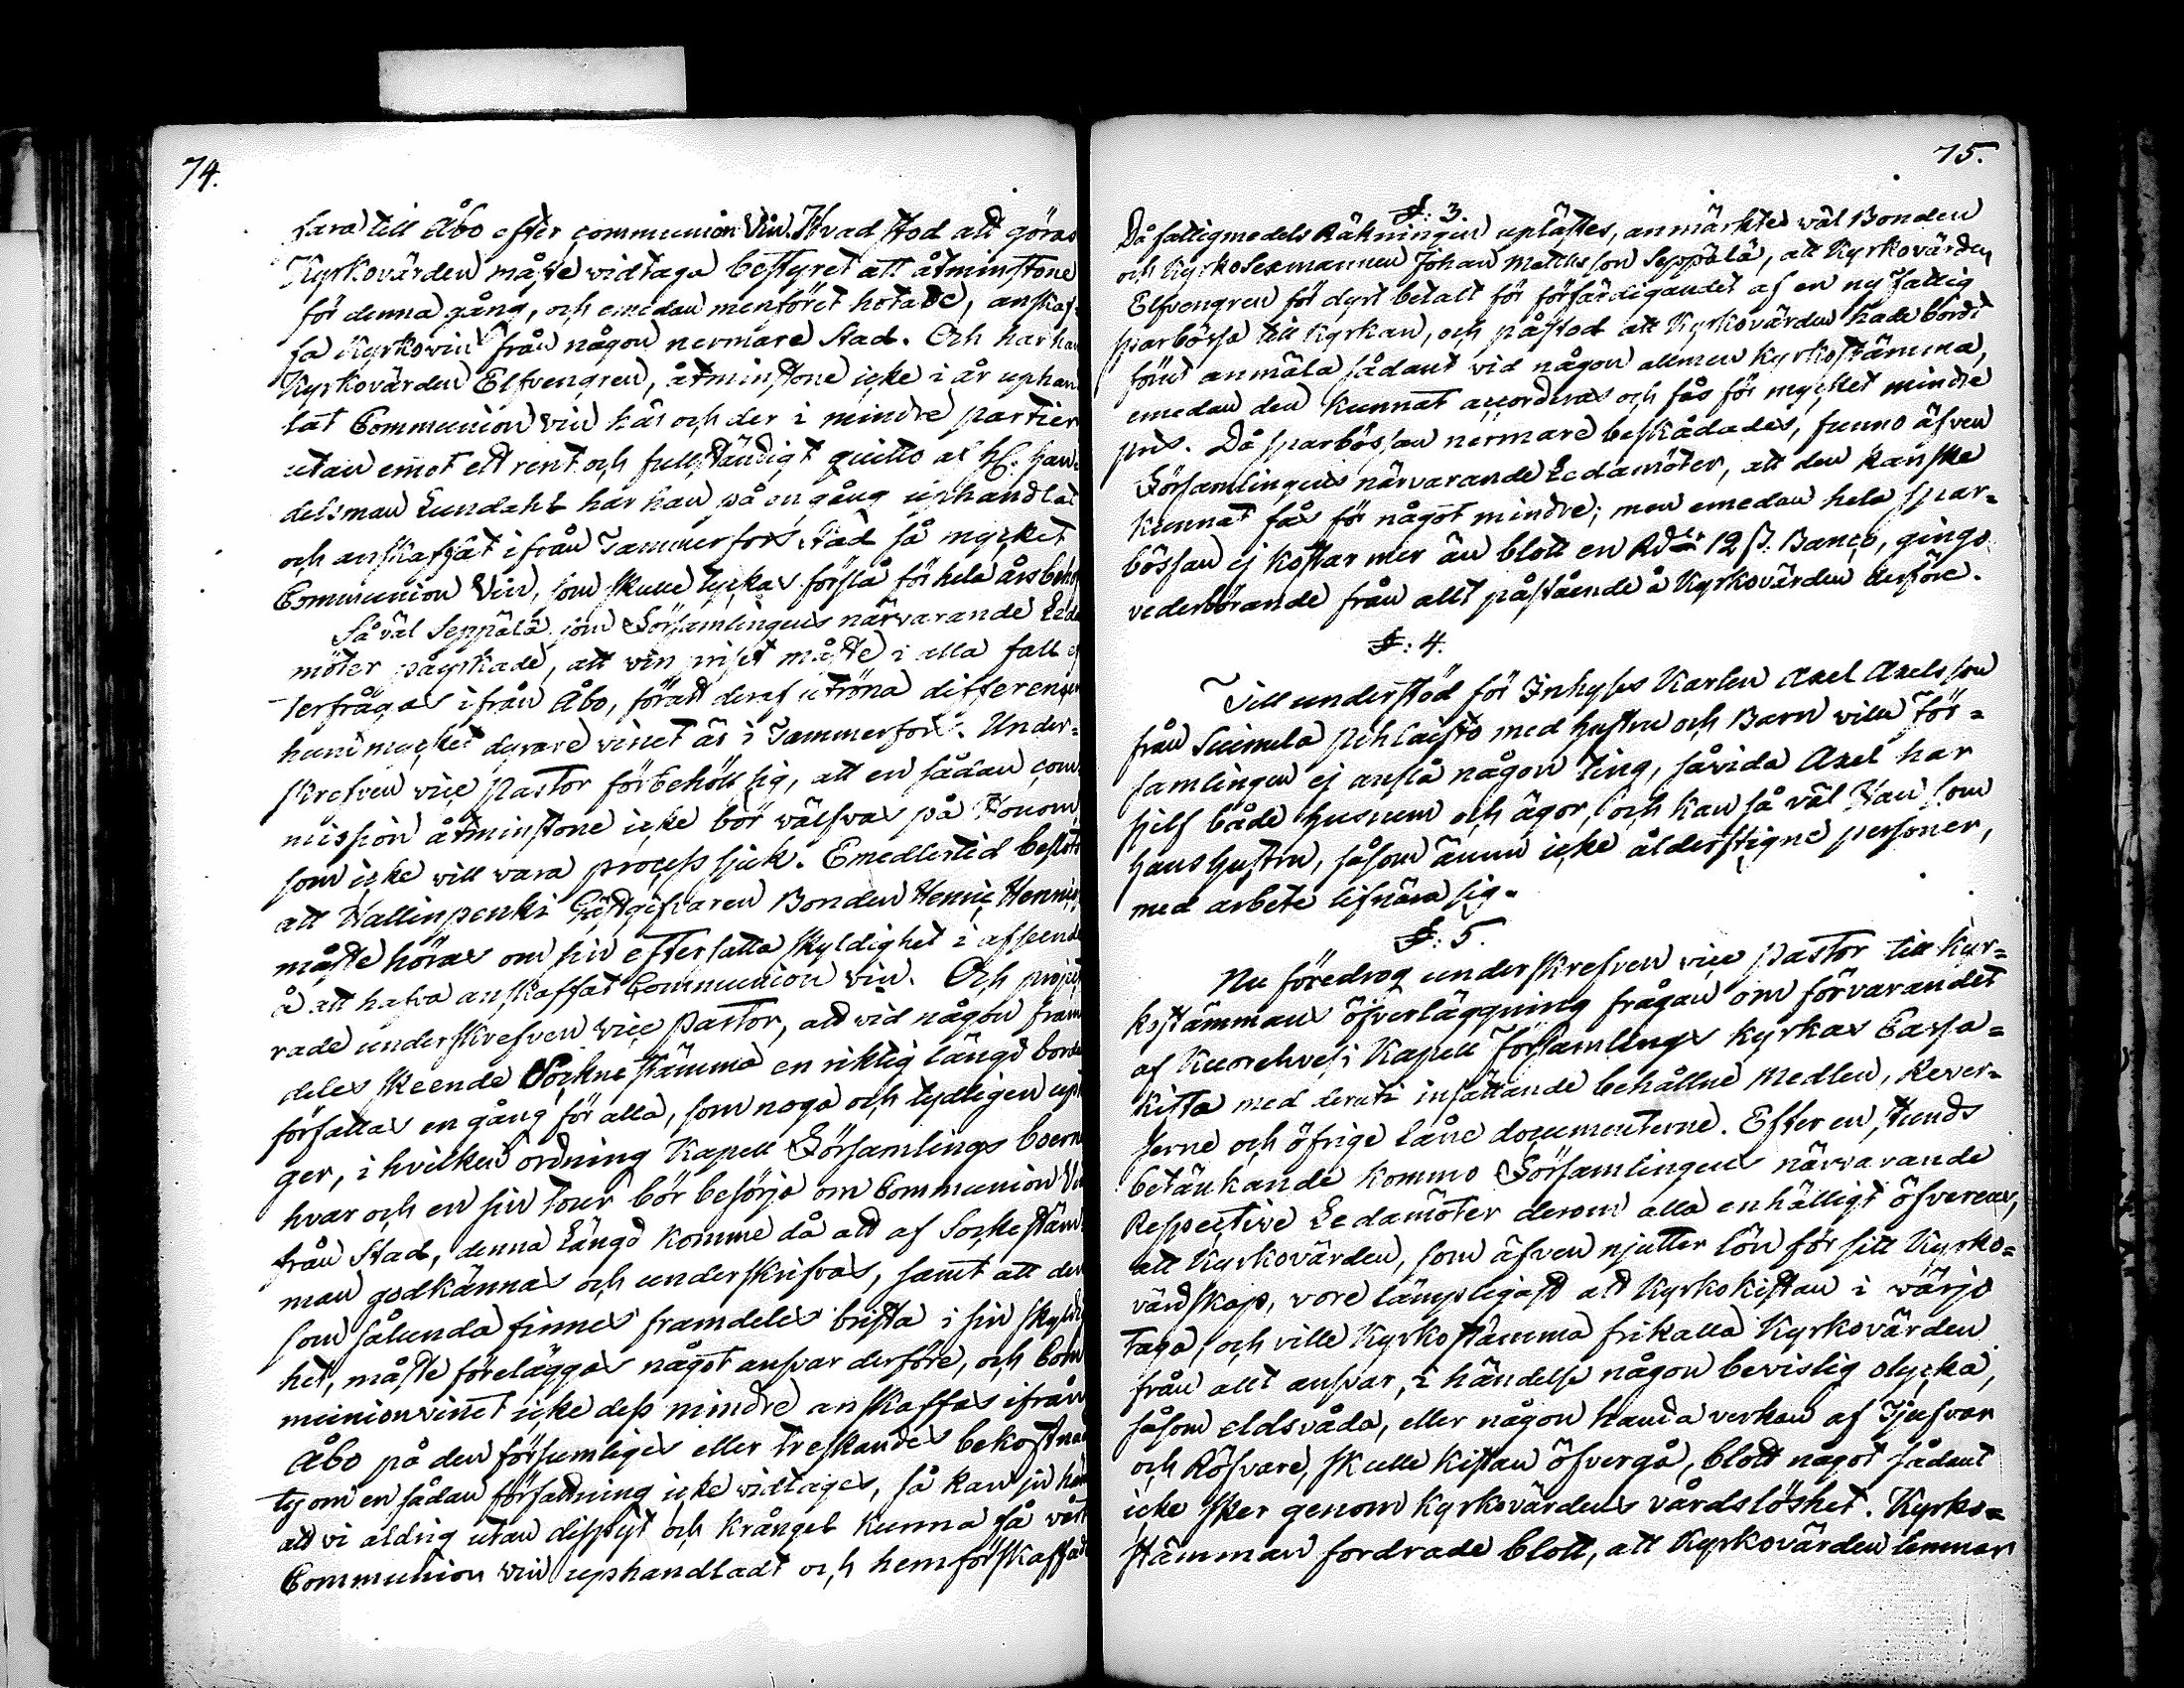 74.
fara till Åbo efter communion Vin. Hvad stod att göras
Kyrkovärden måste vidtaga bestyret att åtminstone
för denna gång, och emedan menföret hotade, anskaf-
fa Kyrkovin från någon nermare Stad. Och har han
Kyrkovärden Elfvengren, åtminstone icke i år uphand
lat Communion vin här och der i mindre partier
utan emot ett rent och fullständigt quitto af Hr: Han-
delsman Lundahl har han på en gång uphandlat
och anskaffat ifrån Tammerfors Stad så mycket
Communion Vin, som skulle tyckas förslå för hela års beho
Så väl Seppälä som Församlingens närvarande Leda
möter påyrkade, att vin priset måste i alla fall ef
terfrågas ifrån Åbo, föratt deraf utröna differencen
huru mycket dyrare vinet är i Tammerfors. Under-
skrefven vice Pastor förbehöll sig, att en sådan com
mission åtminstone icke bör välfvas på Honom,
som icke vill vara process sjuk. Emedlertid beslöts
att Hallinpenki Gästgifvaren Bonden Henric Henrics
måste höras om sin eftersatta skyldighet i afseende
å att hafva anskaffat Communion vin. Och projec
rade underskrefven vice Pastor, att vid någon fram
deles skeende Sockne stämma en riktig längd borde
författas en gång för alla, som noga och tydligen upt
ger, i hvilken ordning Kapell Församlings boern
hvar och en sin tour bör besörja om Communion Vin
från Stad, denna Längd komme då att af Sockestäm
man godkännas och underskrifvas, samt att den
som sålunda finnes framdeles brista i sin skyldig
het, måste föreläggas något ansvar derföre, och Com
munionvinet icke dess mindre anskaffas ifrån
Åbo på den försumliges eller treskandes bekostnad
ty om en sådan författning icke vidtages, så kan ju hän
att vi aldrig utan disput och krångel kunna få vårt
Communion vin uphandladt och hemförskaffadt
75.
§: 3.
Då fattigmedels Räkningen uplästes, anmärkte väl Bonden
och Kyrko Sexmannen Johan Matthsson Seppälä, att Kyrkovärden
Elfvengren för dyrt betalt för förfärdigandet af en ny fattig
sparbössa till Kyrkan, och påstod att Kyrkovärden hade bordt
förut anmäla sådant vid någon allmen Kyrkostämma,
emedan den kunnat accorderas och fås för mycket mindre
pris. Då sparbössan nermare beskådades, funno äfven
Församlingens närvarande Ledamöter, att den kanske
kunnat fås för något mindre; men emedan hela spar-
bössan ej kostar mer än blott en Rdlr 12 ß. Banco, gingo
vederbörande från allt påstående å Kyrkovärden derföre.
§: 4.
Till understöd för Inhyses Karlen Axel Axelsson
från Suimula Pihlaisto med hustru och Barn ville För-
samlingen ej anslå någon ting, såvida Axel har
sjelf både husrum och ägor, och kan så väl Han som
Hans hustru, såsom ännu icke ålderstigne personer,
med arbete lifnära sig.
§: 5.
Nu föredrog underskrefven vice Pastor till Kyr-
kostämmans öfverläggning frågan om förvarandet
af Kuorehvesi Kapell Församlings Kyrkas Cassa-
kista med deruti insättande behållne Medlen, Rever-
serne och öfrige låne documenterne. Efter en stunds
betänkande kommo Församlingens närvarande
Respective Ledamöter derom alla enhälligt öfverens,
att Kyrkovärden, som äfven njutter lön för sitt Kyrko-
värdskap, vore lämpligast att Kyrkokistan i värjo
taga, och ville Kyrkostämma frikalla Kyrkovärden
från allt ansvar, i händelse någon bevislig olycka,
såsom eldsvåda, eller någon handa verkan af Tjufvar
och Röfvare, skulle kistan öfvergå, blott något sådant
icke sker genom Kyrkovärdens vårdslöshet. Kyrko-
stämman fordrade blott, att Kyrkovärden lemnar